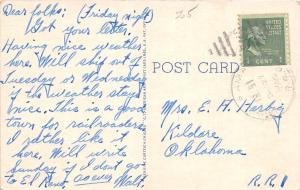 Dear folks: (Friday night)
Got your letter.
Having nice weather
here. Will ship out
Tuesday or Wednesday
if the weather stays
nice. This is a good
town for railroaders.
I rather like it
here. Will write
Sunday if I don't go
to El Reno, as ever Walt.
25
POST CARD
UNITED STATES
POSTAGE
1 CENT
Mrs. E. H. Herbig
Kildare
Oklahoma
R.R.1